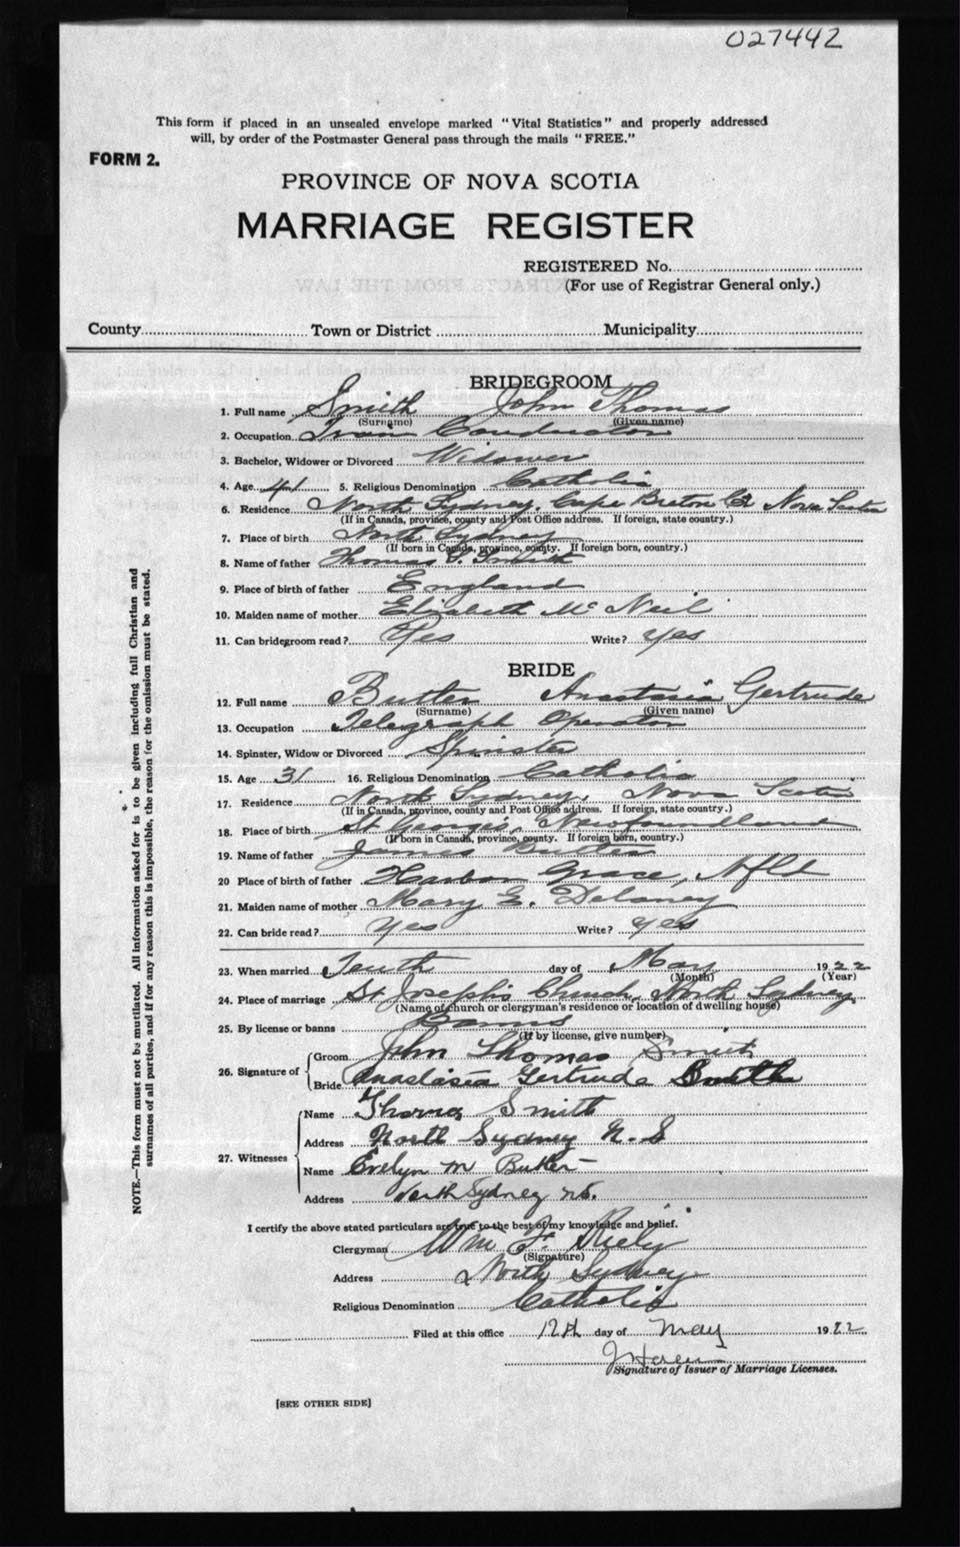 027442
This form if placed in an unsealed envelope marked "Vital Statistics" and properly addressed
will, by order of the Postmaster General pass through the mails "FREE."
FORM 2.
PROVINCE OF NOVA SCOTIA
MARRIAGE REGISTER
REGISTERED No.
(For use of Registrar General only.)
County Town or District Municipality
BRIDEGROOM
1. Full name Smith John Thomas
(Surname) (Given name)
2. Occupation Tram Conductor
3. Bachelor, Widower or Divorced Widower
4. Age 41 5. Religious Denomination Catholic
6. Residence North Sydney, Cape Breton Co Nova Scotia
(If in Canada, province, county and Post Office address. If foreign, state country.)
7. Place of birth North Sydney
(If born in Canada, province, county. If foreign born, country.)
8. Name of father Thomas Smith
9. Place of birth of father England
10. Maiden name of mother Elizabeth McNeil
11. Can bridegroom read? Yes Write? yes
BRIDE
12. Full name Butler Anastasia Gertrude
(Surname) (Given name)
13. Occupation Telegraph Operator
14. Spinster, Widow or Divorced Spinster
15. Age 31 16. Religious Denomination Catholic
17. Residence North Sydney, Nova Scotia
(If in Canada, province, county and Post Office address. If foreign, state country.)
18. Place of birth St Georges, Newfoundland
(If born in Canada, province, county. If foreign born, country.)
19. Name of father James Butler
20 Place of birth of father Harbor Grace, Nfld
21. Maiden name of mother Mary E. Delaney
22. Can bride read? Yes Write? yes
23. When married Tenth day of May 1922
(Month) (Year)
24. Place of marriage St Joseph's Church, North Sydney
(Name of church or clergyman's residence or location of dwelling house)
25. By license or banns Banns
(If by license, give number)
26. Signature of Groom John Thomas Smith
Bride Anastasia Gertrude
27. Witnesses Name Thomas Smith
Address North Sydney N. S
Name Evelyn M Butler
Address North Sydney N.S.
I certify the above stated particulars are true to the best of my knowledge and belief.
Clergyman Wm F. Kiely
(Signature)
Address North Sydney
Religious Denomination Catholic
Filed at this office 12th day of May 1922
Signature of Issuer of Marriage Licenses.
[SEE OTHER SIDE]
NOTE.—This form must not be mutilated. All information asked for is to be given including full Christian and
surnames of all parties, and if for any reason this is impossible, the reason for the omission must be stated.